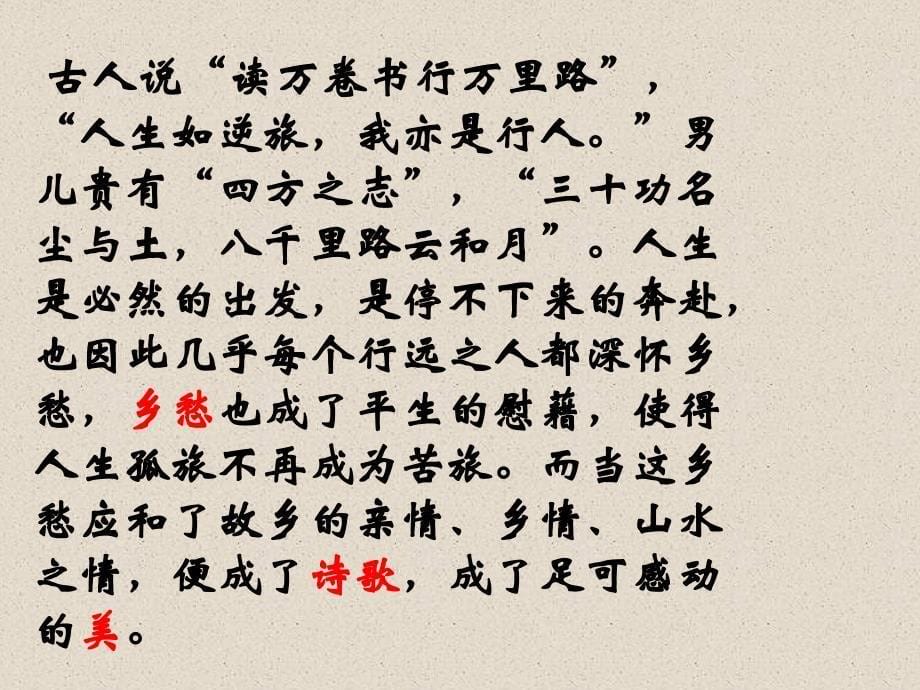 古人说“读万卷书行万里路”，
“人生如逆旅，我亦是行人。”男
儿贵有“四方之志”，“三十功名
尘与土，八千里路云和月”。人生
是必然的出发，是停不下来的奔赴，
也因此几乎每个行远之人都深怀乡
愁，乡愁也成了平生的慰藉，使得
人生孤旅不再成为苦旅。而当这乡
愁应和了故乡的亲情、乡情、山水
之情，便成了诗歌，成了足可感动
的美。